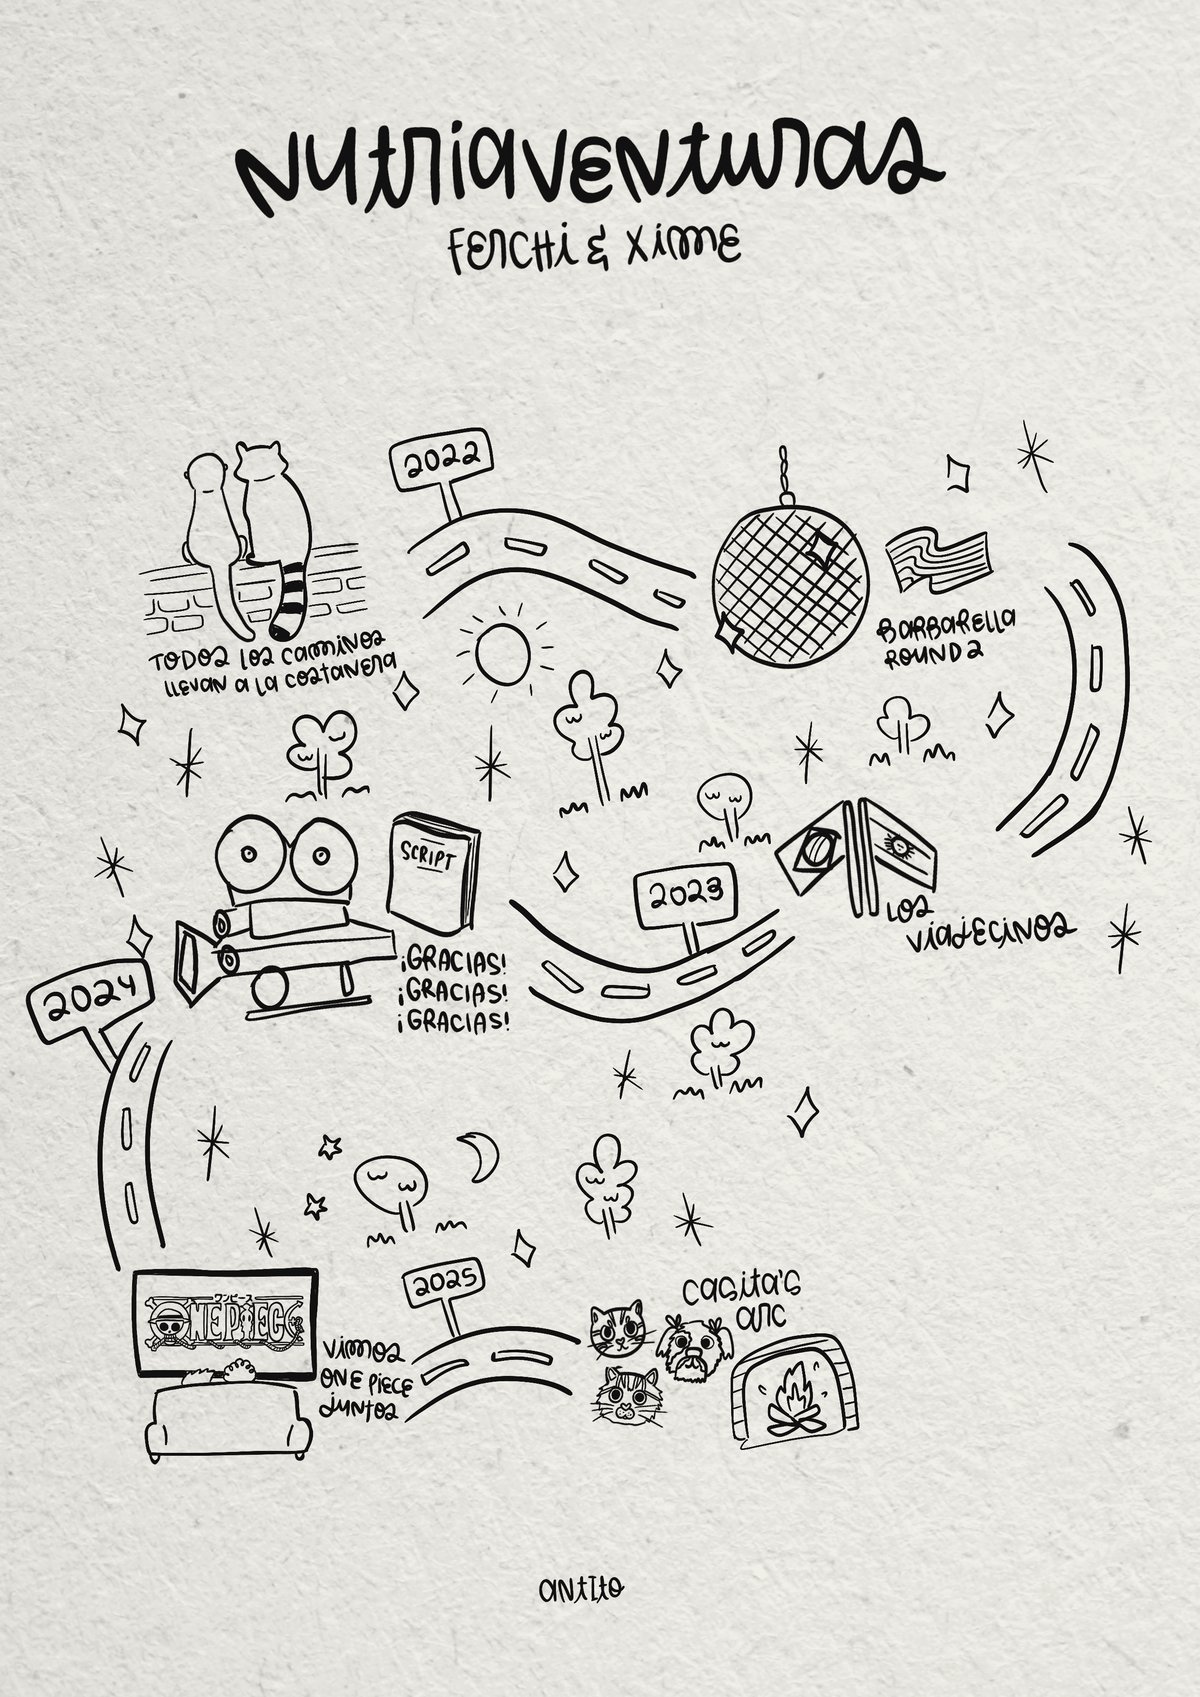 Nutriaventuras
Ferchi & Xime
2022
Todos los caminos
llevan a la costanera
Barbarella
Round 2
Script
¡Gracias!
¡Gracias!
¡Gracias!
2023
Los
Viajecinos
2024
ワンピース
ONE PIECE
Vimos
One Piece
juntos
2025
Casita's
arc
antito